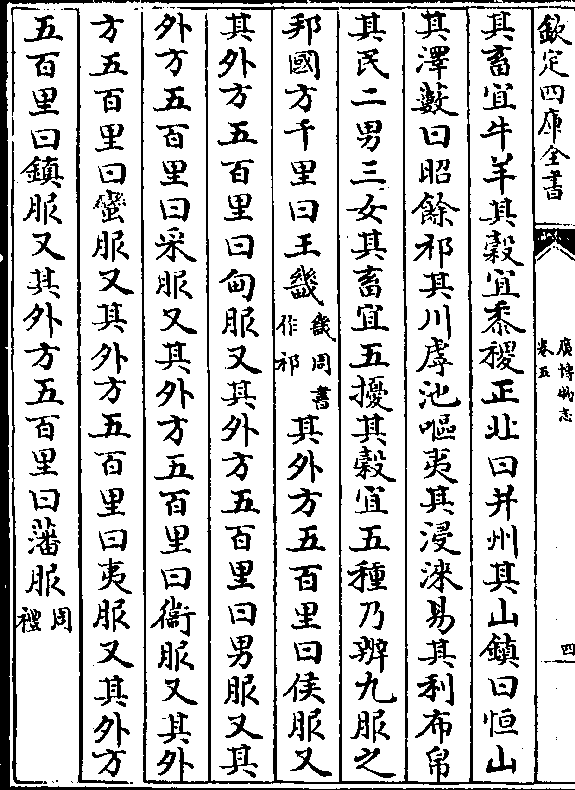 欽定四庫全書
廣博物志
卷五
四
其畜宜牛羊其穀宜黍稷正北曰并州其山鎮曰恒山
其澤藪曰昭餘祁其川虖池嘔夷其浸淶易其利布帛
其民二男三女其畜宜五擾其穀宜五種乃辨九服之
邦國方千里曰王畿畿周書作祁其外方五百里曰侯服又
其外方五百里曰甸服又其外方五百里曰男服又其
外方五百里曰采服又其外方五百里曰衞服又其外
方五百里曰蠻服又其外方五百里曰夷服又其外方
五百里曰鎮服又其外方五百里曰藩服周禮